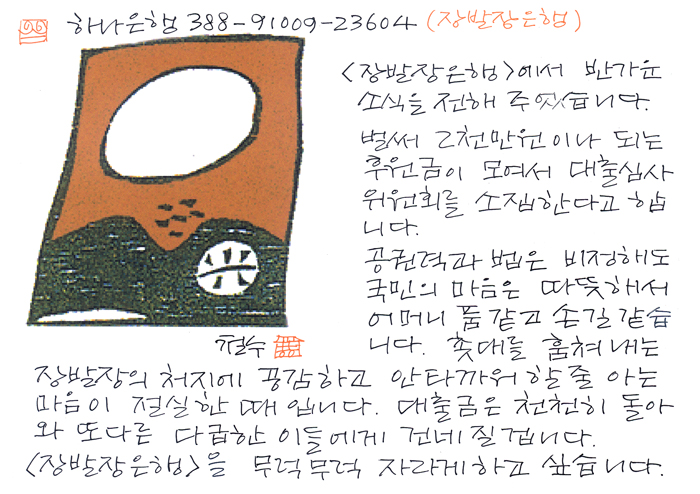 하나은행 388-91009-23604 (장발장은행)
<장발장은행>에서 반가운
소식을 전해 주었습니다.
벌써 2천만원이나 되는
후원금이 모여서 대출심사
위원회를 소집한다고 합
니다.
공권력과 법은 비정해도
국민의 마음은 따뜻해서
어머니 품같고 손길같습
니다. 촛대를 훔쳐내는
철수
장발장의 처지에 공감하고 안타까워 할줄 아는
마음이 절실한 때입니다. 대출금은 천천히 돌아
와 또다른 다급한 이들에게 건네질겁니다.
<장발장은행>을 무럭무럭 자라게하고 싶습니다.